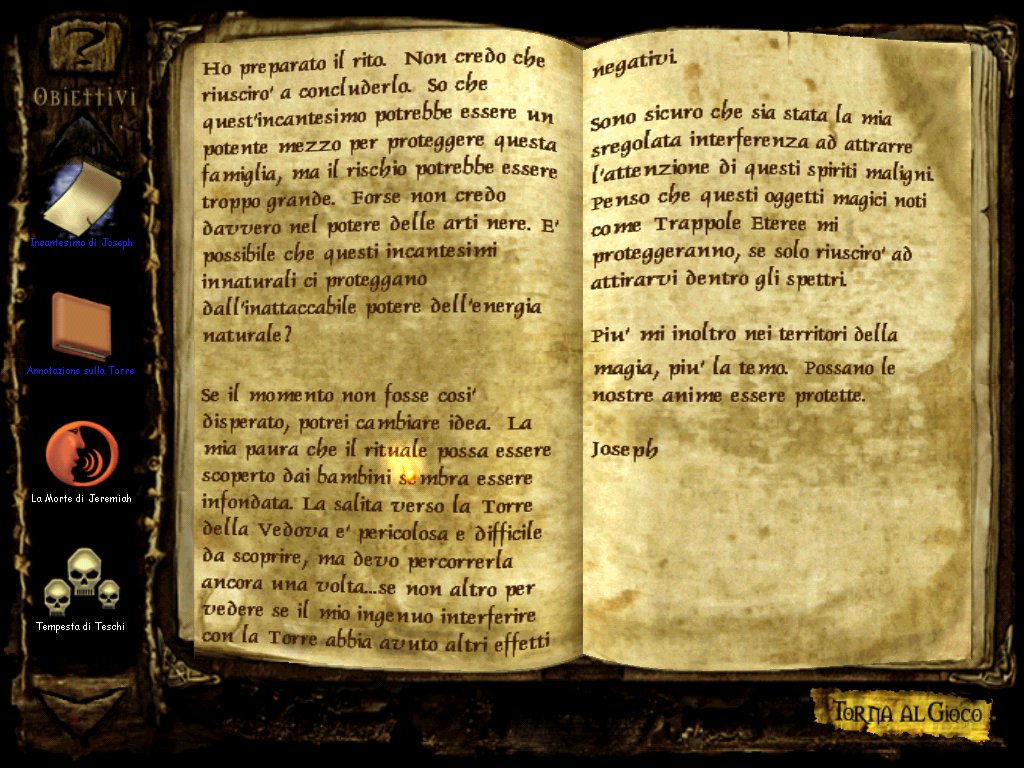 Obiettivi
Incantesimo di Joseph
Annotazione sulla Torre
La Morte di Jeremiah
Tempesta di Teschi
Ho preparato il rito. Non credo che
riusciro' a concluderlo. So che
quest'incantesimo potrebbe essere un
potente mezzo per proteggere questa
famiglia, ma il rischio potrebbe essere
troppo grande. Forse non credo
davvero nel potere delle arti nere. E'
possibile che questi incantesimi
innaturali ci proteggano
dall'inattaccabile potere dell'energia
naturale?
Se il momento non fosse cosi'
disperato, potrei cambiare idea. La
mia paura che il rituale possa essere
scoperto dai bambini sembra essere
infondata. La salita verso la Torre
della Vedova e' pericolosa e difficile
da scoprire, ma devo percorrerla
ancora una volta...se non altro per
vedere se il mio ingenuo interferire
con la Torre abbia avuto altri effetti
negativi.
Sono sicuro che sia stata la mia
sregolata interferenza ad attrarre
l'attenzione di questi spiriti maligni.
Penso che questi oggetti magici noti
come Trappole Eteree mi
proteggeranno, se solo riusciro' ad
attirarvi dentro gli spettri.
Piu' mi inoltro nei territori della
magia, piu' la temo. Possano le
nostre anime essere protette.
Joseph
Torna al Gioco